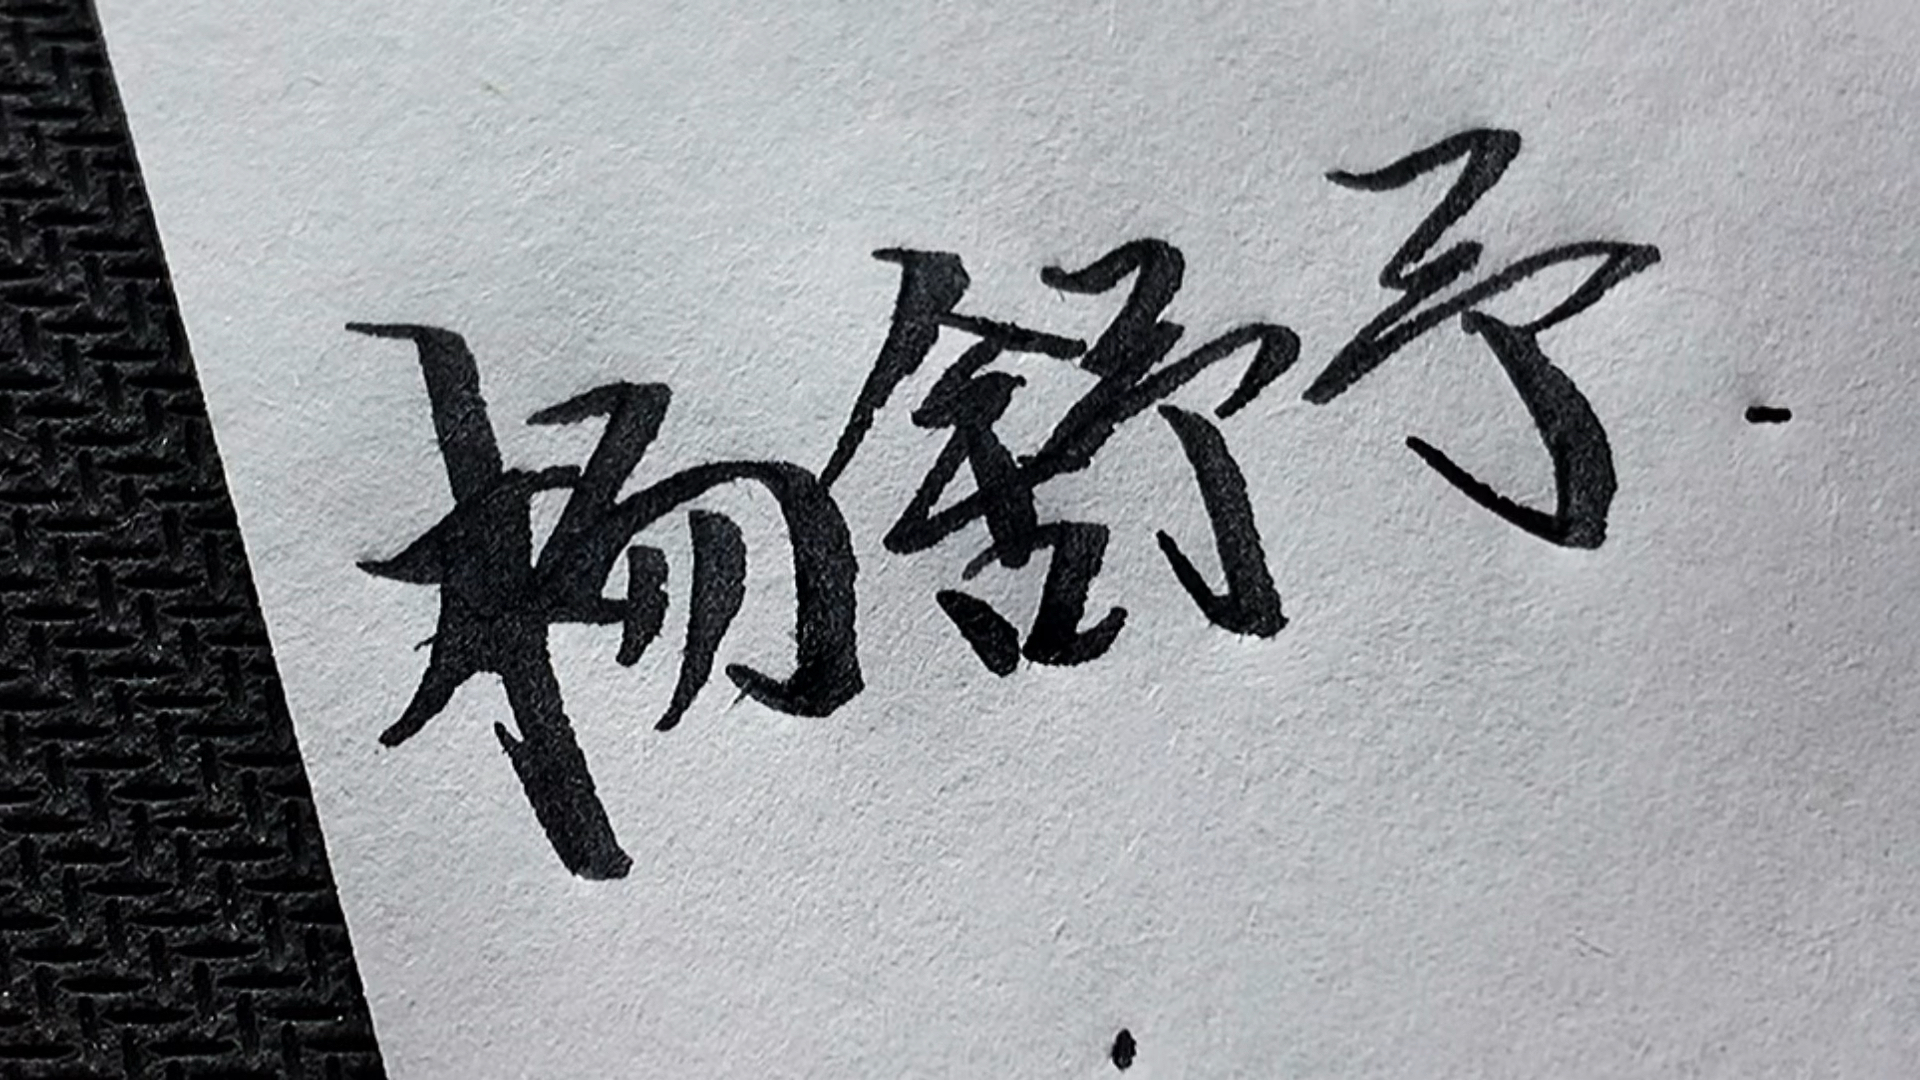 杨舒予